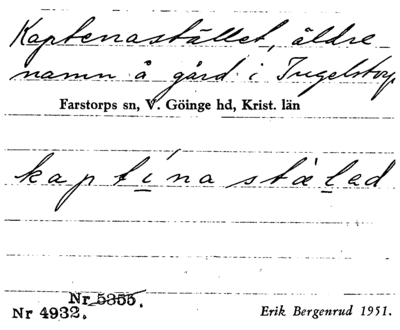 Kaptenastället, äldre
namn å gård i Ingelstorp
Farstorps sn, V. Göinge hd, Krist. län
kaptinastäled
Nr 5355.
Nr 4932.
Erik Bergenrud 1951.